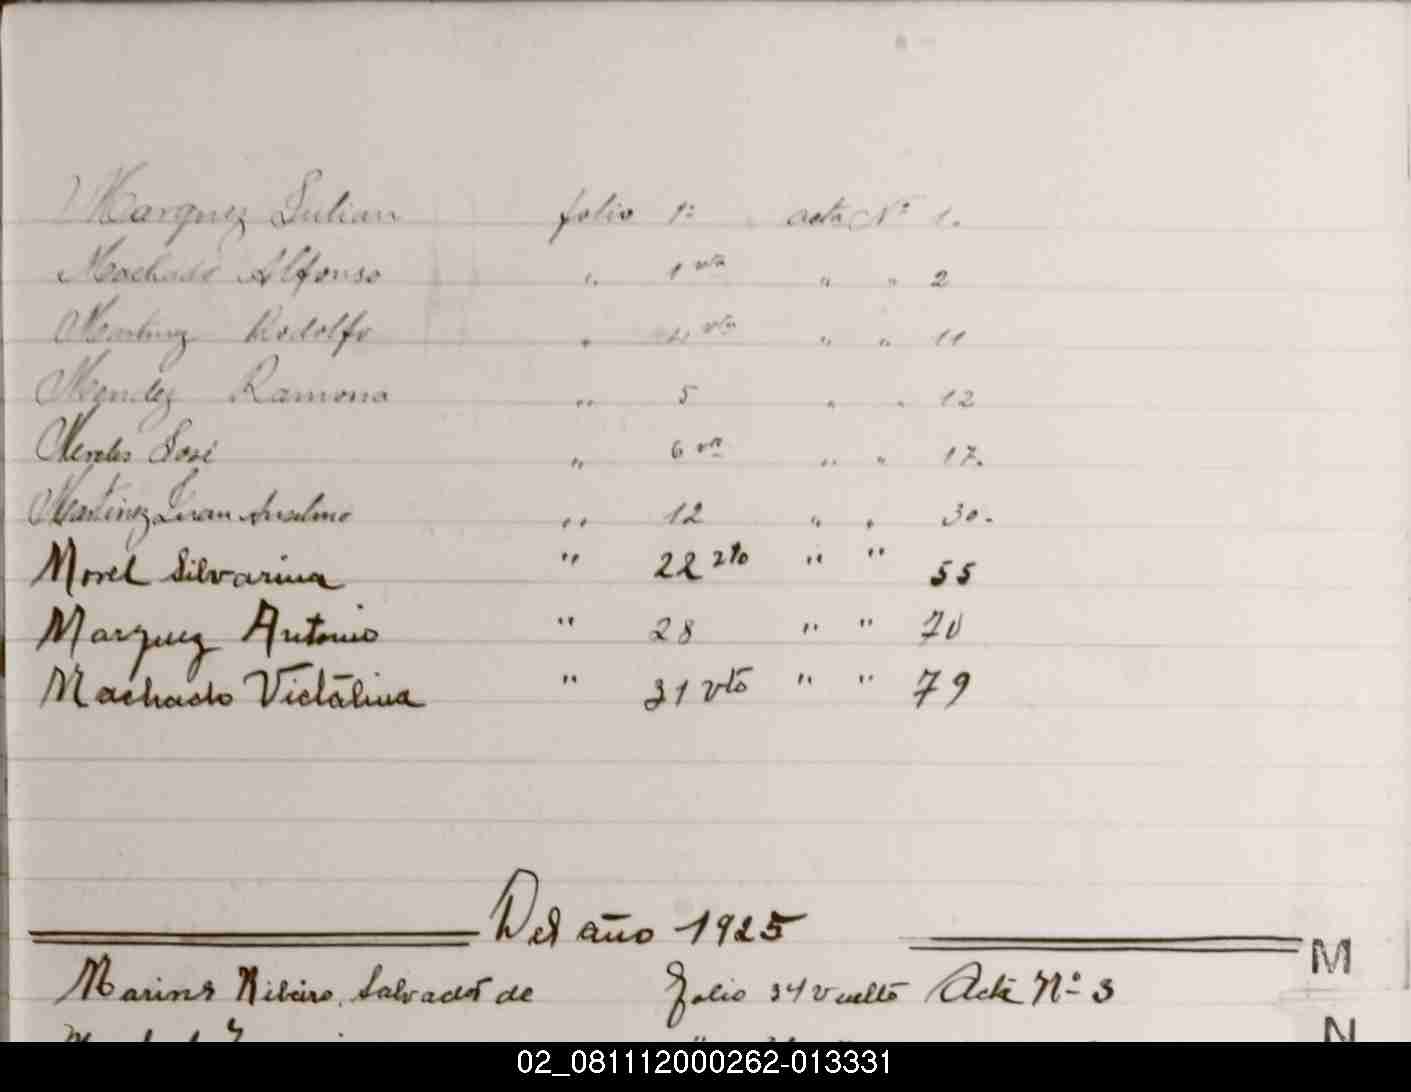 Marquez Julian folio 1º acta Nº 1.
Machado Alfonso " 1 vta " " 2
Martinez Rodolfo " 4 vto " " 11
Mendez Ramona " 5 " " 12
José " 6 vta " " 17.
Martinez Juan Anselmo " 12 " " 30.
Morel Silvarina " 22 vto " " 55
Marquez Antonio " 28 " " 70
Machado Victalina " 31 vto " " 79
Del año 1925
Marins Ribeiro, Salvador de folio 34 vuelto Acta Nº 3
M
N
02_081112000262-013331